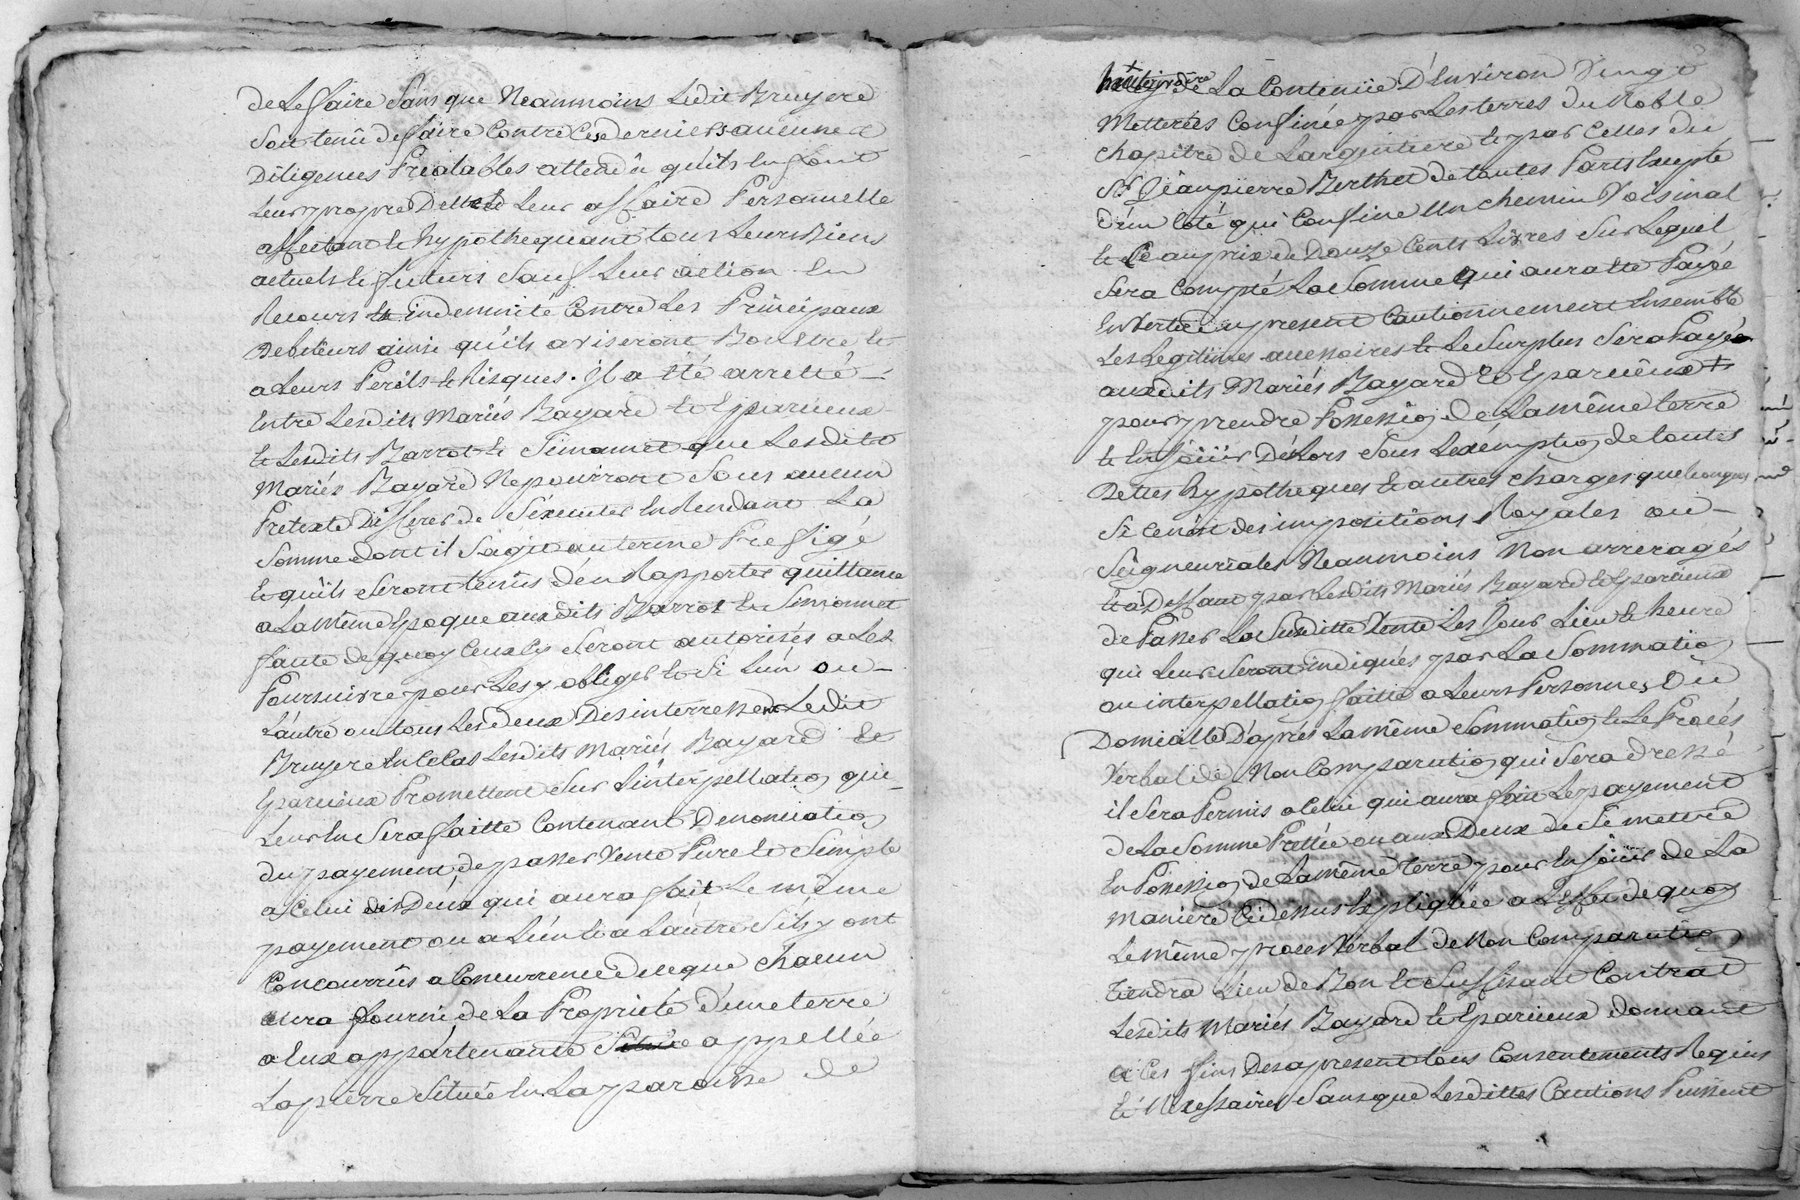 de Le faire Sans que Neanmoins Ledit Bruyere
Soit tenû de faire Contre Ces derniers aucune
Diligences Prealables attendû quils en font
Leur propre Dette et Leur affaire Personnelle
affectant et hypothequant tous Leurs Biens
actuels et futurs Sauf Leur action En
Recours et indemnité Contre Les Principaux
Debiteurs ainsi qu'ils aviseront Bon Etre et
a Leurs Perils et Risques. Il a été arretté
Entre Lesdits Mariés Bayard et Eparvieux
et Lesdits Barrot et Simonnet que Lesdits
Mariés Bayard Ne pourront Sous aucun
Pretexte Differer de S'éxecuter En Rendant La
Somme dont il S'agit au terme Prefigé
et qu'ils Seront tenûs d'en Rapporter quittance
a La même Epoque auxdits Barrot et Simonnet
faute de quoy Ceux cy Seront autorisés a Les
Poursuivre pour Les y obliger et Si L'un ou
L'autre ou tous Les deux Desinterressent Ledit
Bruyere En Ce Cas Lesdits Mariés Bayard et
Eparvieux Promettent Sur L'interpellation qui
Leur En Sera faitte Contenant Denonciation
du payement de passer Vente Pure et Simple
a Celui des Deux qui aura fait Le même
payement ou a L'un et a L'autre S'ils y ont
Concourrûs a Concurrence de ce que Chacun
aura fourni de La Propriété d'une terre
a Eux appartenante appellée
Lapierre Située En La paroisse de
de La Contenüe D'Environ Vingt
Metterées Confinée par Les terres du Noble
Chapitre de Largentiere et par Celles du
Sr Jean pierre Berthet de toutes Parts Excepté
d'un Coté qui Confine Un chemin Voisinal
et Ce au prix de Douze Cents Livres Sur Lequel
Sera Compté La Somme qui aura été Payée
En Vertu du present Cautionnement Ensemble
Les Legitimes accessoires et Le Surplus Sera Payé
auxdits Mariés Bayard et Eparvieux
pour prendre Possession de La même terre
et En Joüir Dès Lors Sous L'exemption de toutes
Dettes hypotheques et autres charges quelconques
Si Ce n'est des impositions Royales ou
Seigneuriales Neanmoins Non arreragés
Et a Deffaut par Lesdits Mariés Bayard et Eparvieux
de Passer La Susditte Vente Les Jour Lieu et heure
qui Leur Seront indiqués par La Sommation
ou interpellation faitte a Leurs Personnes Ou
Domicille D'aprés La même Sommation et Le Procés
Verbal de Non Comparution qui Sera dressé
il Sera Permis a Celui qui aura fait Le payement
de La Somme Prettée ou aux Deux de Se mettre
En Possession de La même terre pour En Joüir de La
maniere Ci dessus Expliquée a L'effet de quoy
Le même procés Verbal de Non Comparution
tiendra Lieu de Bon et Suffisant Contrat
Lesdits Mariés Bayard et Eparvieux donnant
a Ces fins Des a present tous Consentements Requis
et Necessaires Sans que Lesdittes Cautions Puissent